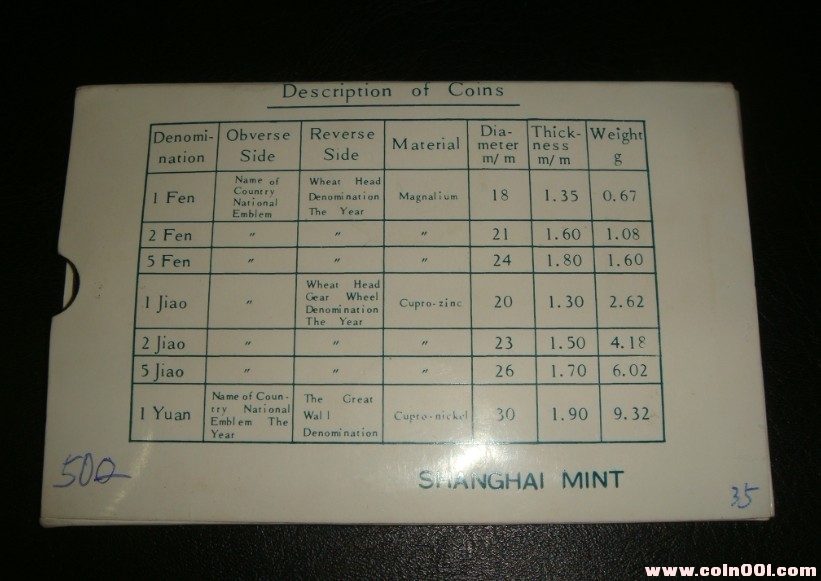 Description of Coins
Denomi-nation Obverse Side Reverse Side Material Dia-meter m/m Thick-ness m/m Weight g
1 Fen Name of Country National Emblem Wheat Head Denomination The Year Magnalium 18 1.35 0.67
2 Fen 〃 〃 〃 21 1.60 1.08
5 Fen 〃 〃 〃 24 1.80 1.60
1 Jiao 〃 Wheat Head Gear Wheel Denomination The Year Cupro-zinc 20 1.30 2.62
2 Jiao 〃 〃 〃 23 1.50 4.18
5 Jiao 〃 〃 〃 26 1.70 6.02
1 Yuan Name of Coun-try National Emblem The Year The Great Wall Denomination Cupro-nickel 30 1.90 9.32
SHANGHAI MINT
35
www.coin001.com